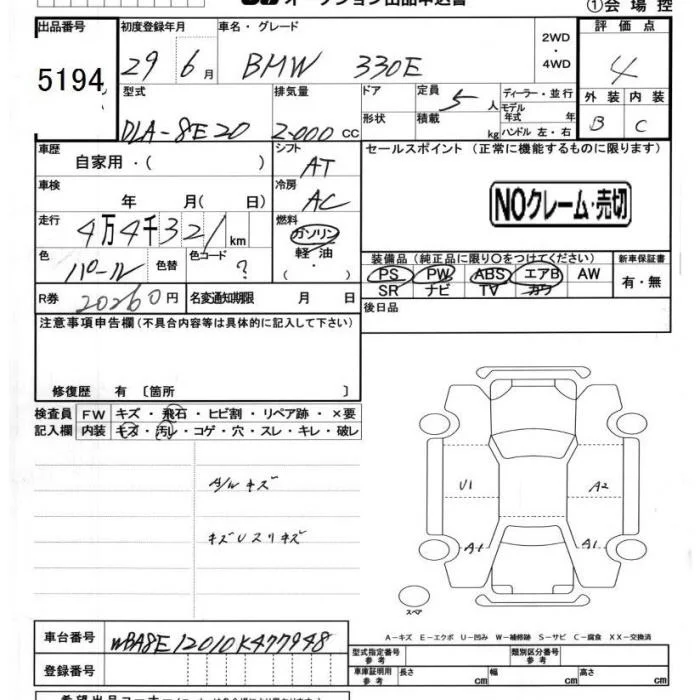 オークション出品申込書
①会場控
出品番号 初度登録年月 車名・グレード 評価点
5194 29年6月 BMW 330E 2WD・4WD 4
型式 排気量 ドア 定員 ディーラー・並行 外装 内装
DLA-8E20 2000cc 形状 5人 積載 kg モデル年式 年 ハンドル 左・右 B C
車歴 シフト セールスポイント(正常に機能するものに限ります)
自家用・( ) AT
車検 冷房
年 月( 日) AC NOクレーム・売切
走行 燃料
4万4千321km ガソリン
軽油
( ・ )
色 色替 色コード 装備品(純正品に限り○をつけてください) 新車保証書
パール ? PS PW ABS エアB AW 有・無
SR ナビ TV カワ
R券 20260円 名変通知期限 月 日 後日品
注意事項申告欄(不具合内容等は具体的に記入して下さい)
修復歴 有 〔箇所 〕
検査員 FW キズ・飛石・ヒビ割・リペア跡・×要
記入欄 内装 キズ・汚レ・コゲ・穴・スレ・キレ・破レ
キズ
U1 A2
A1 A1
スペア
A-キズ E-エクボ U-凹み W-補修跡 S-サビ C-腐食 XX-交換済
車台番号 WBA8E12010K477948
型式指定番号 参考 類別区分番号 参考
登録番号 車庫証明用 参考 長さ cm 幅 cm 高さ cm